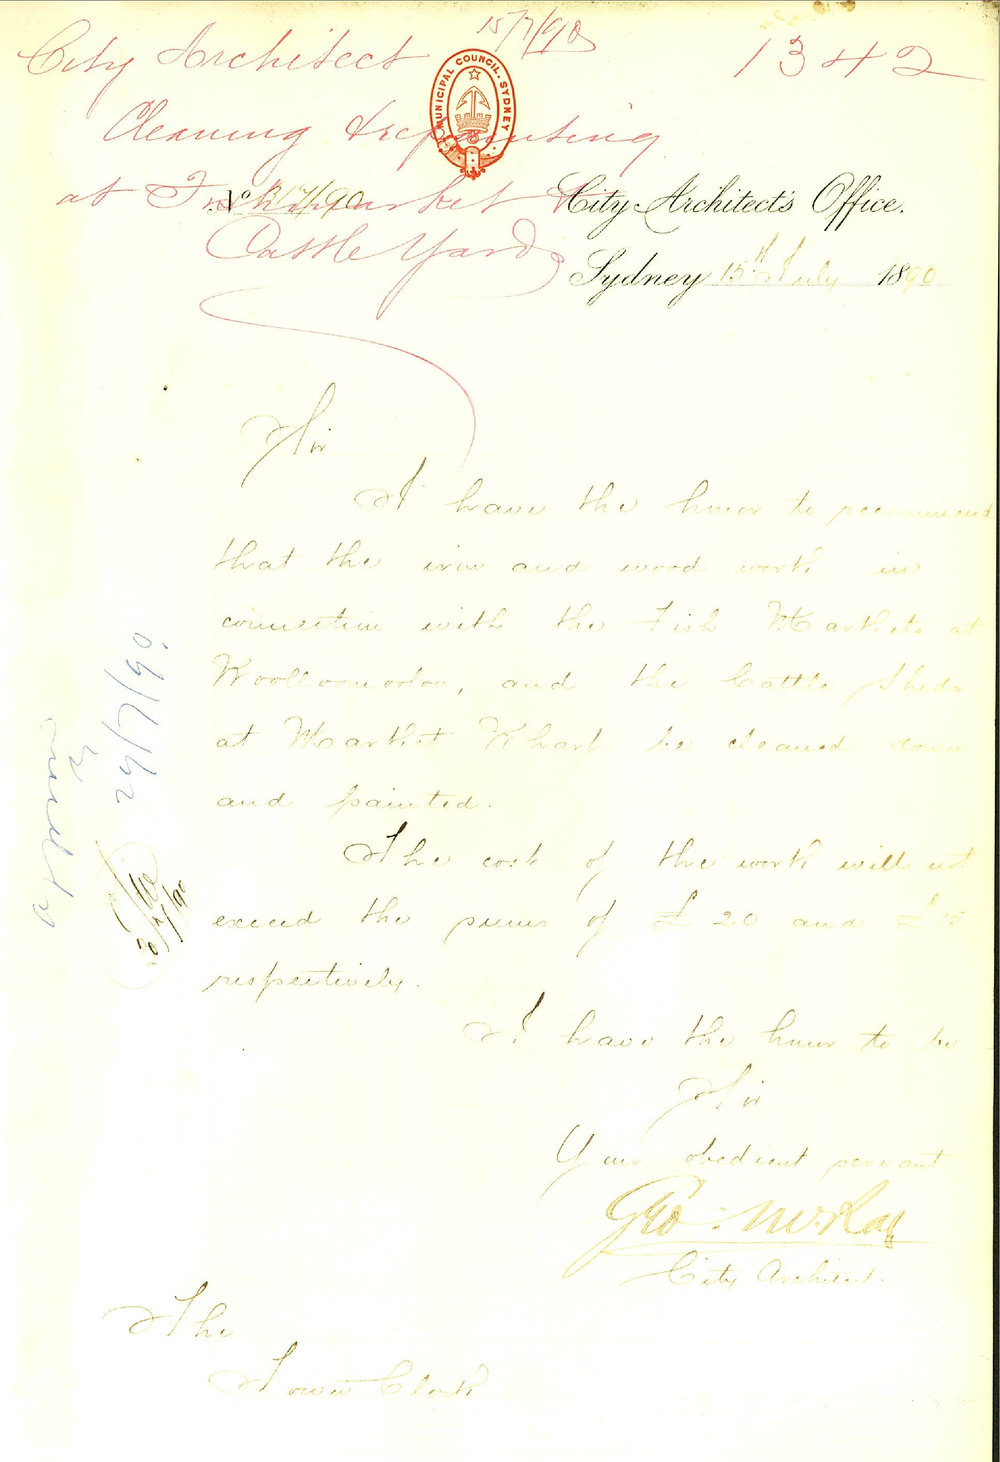 15/7/90
City Architect
1342
MUNICIPAL COUNCIL. SYDNEY
Cleaning & repainting
at Fish market &
Cattle Yards
No 317/90
City Architect's Office.
Sydney 15th July 1890
Sir
I have the honor to recommend
that the iron and wood work in
connection with the Fish Markets at
Woolloomooloo, and the Cattle Sheds
at Market Wharf be cleaned down
and painted.
The cost of the work will not
exceed the sums of £ 20 and £ 15
respectively.
I have the honor to be
Sir
Your obedient servant
Geo: McRae
City Architect.
The
Town Clerk